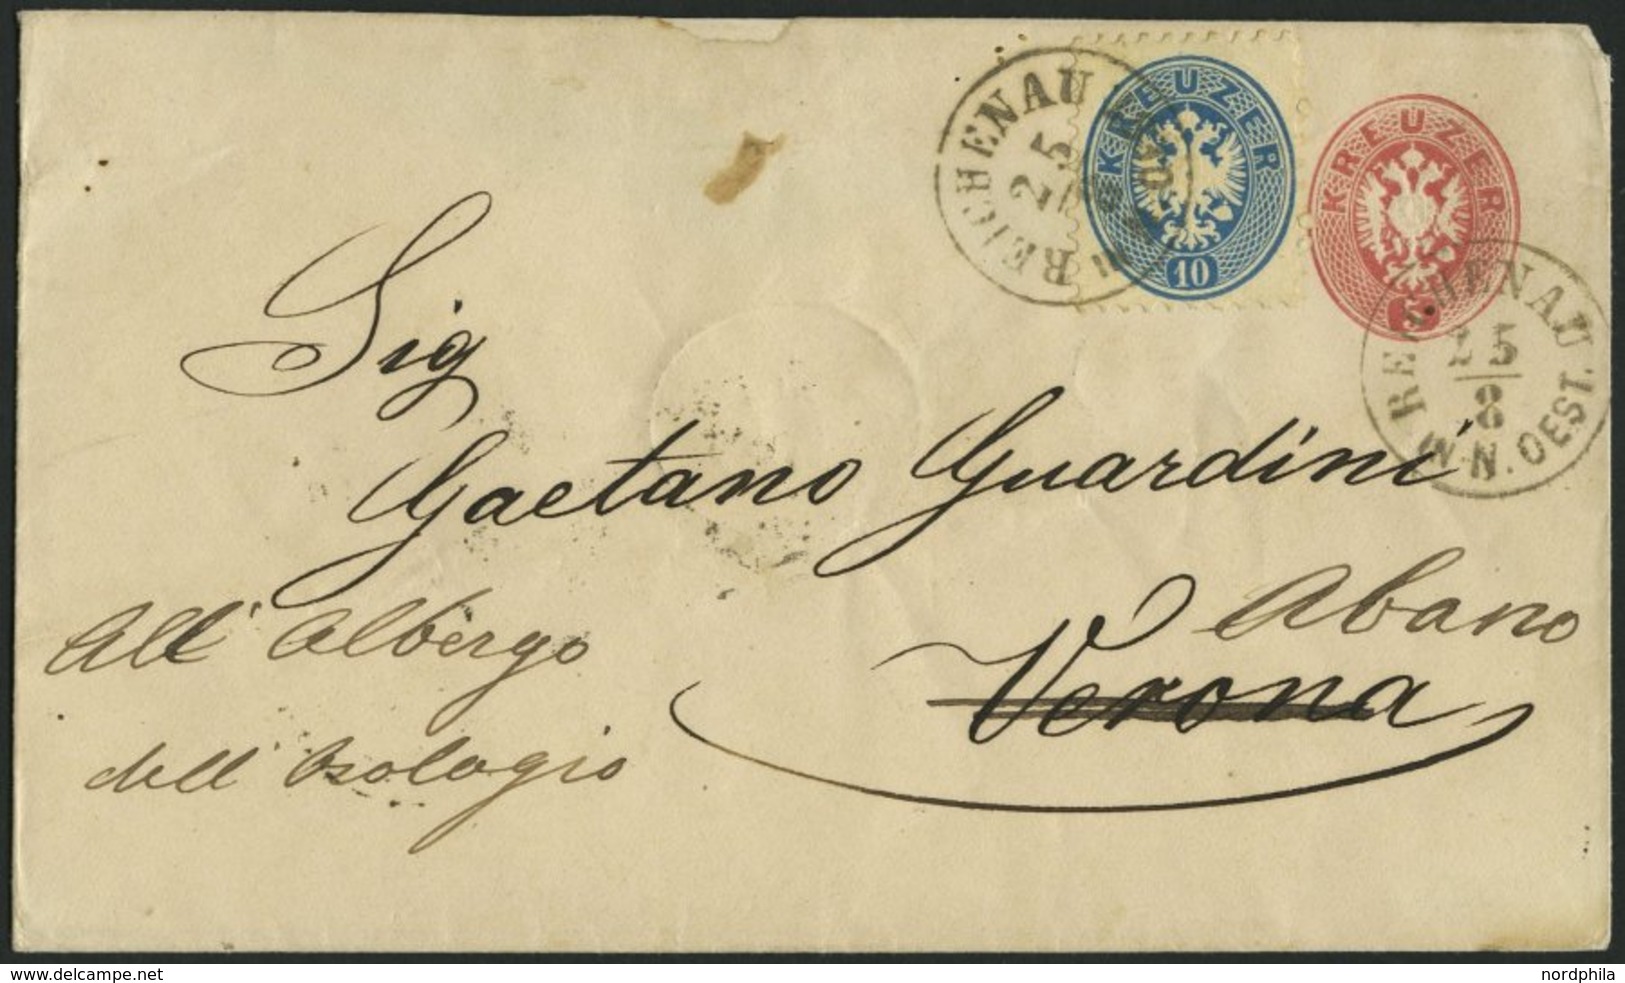 REICHENAU
25
8
W.N.OEST.
KREUZER
10
KREUZER
5
REICHENAU
25
8
W.N.OEST.
Sig
Gaetano Guardini
Abano
Verona
All'Albergo
dell'Orologio
www.delcampe.net
nordphila